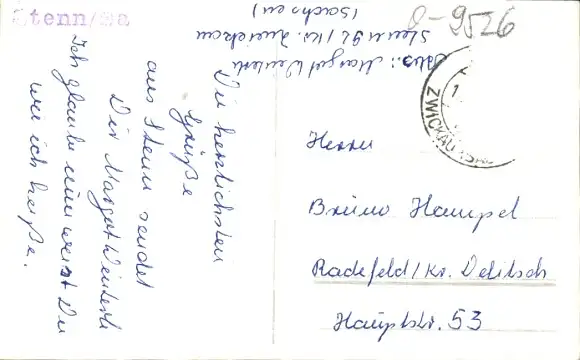 Stenn/Sa
0-9526
Abs.: Margot
Stenn 92 / Kr. Zwickau
(Sachsen)
ZWICKAU
Die herzlichsten
Grüße
aus Stenn sendet
Dir Margot
Ich glaube nun weist Du
wie ich heiße.
Herrn
Bruno Hampel
Radefeld/Kr. Delitsch
Hauptstr. 53